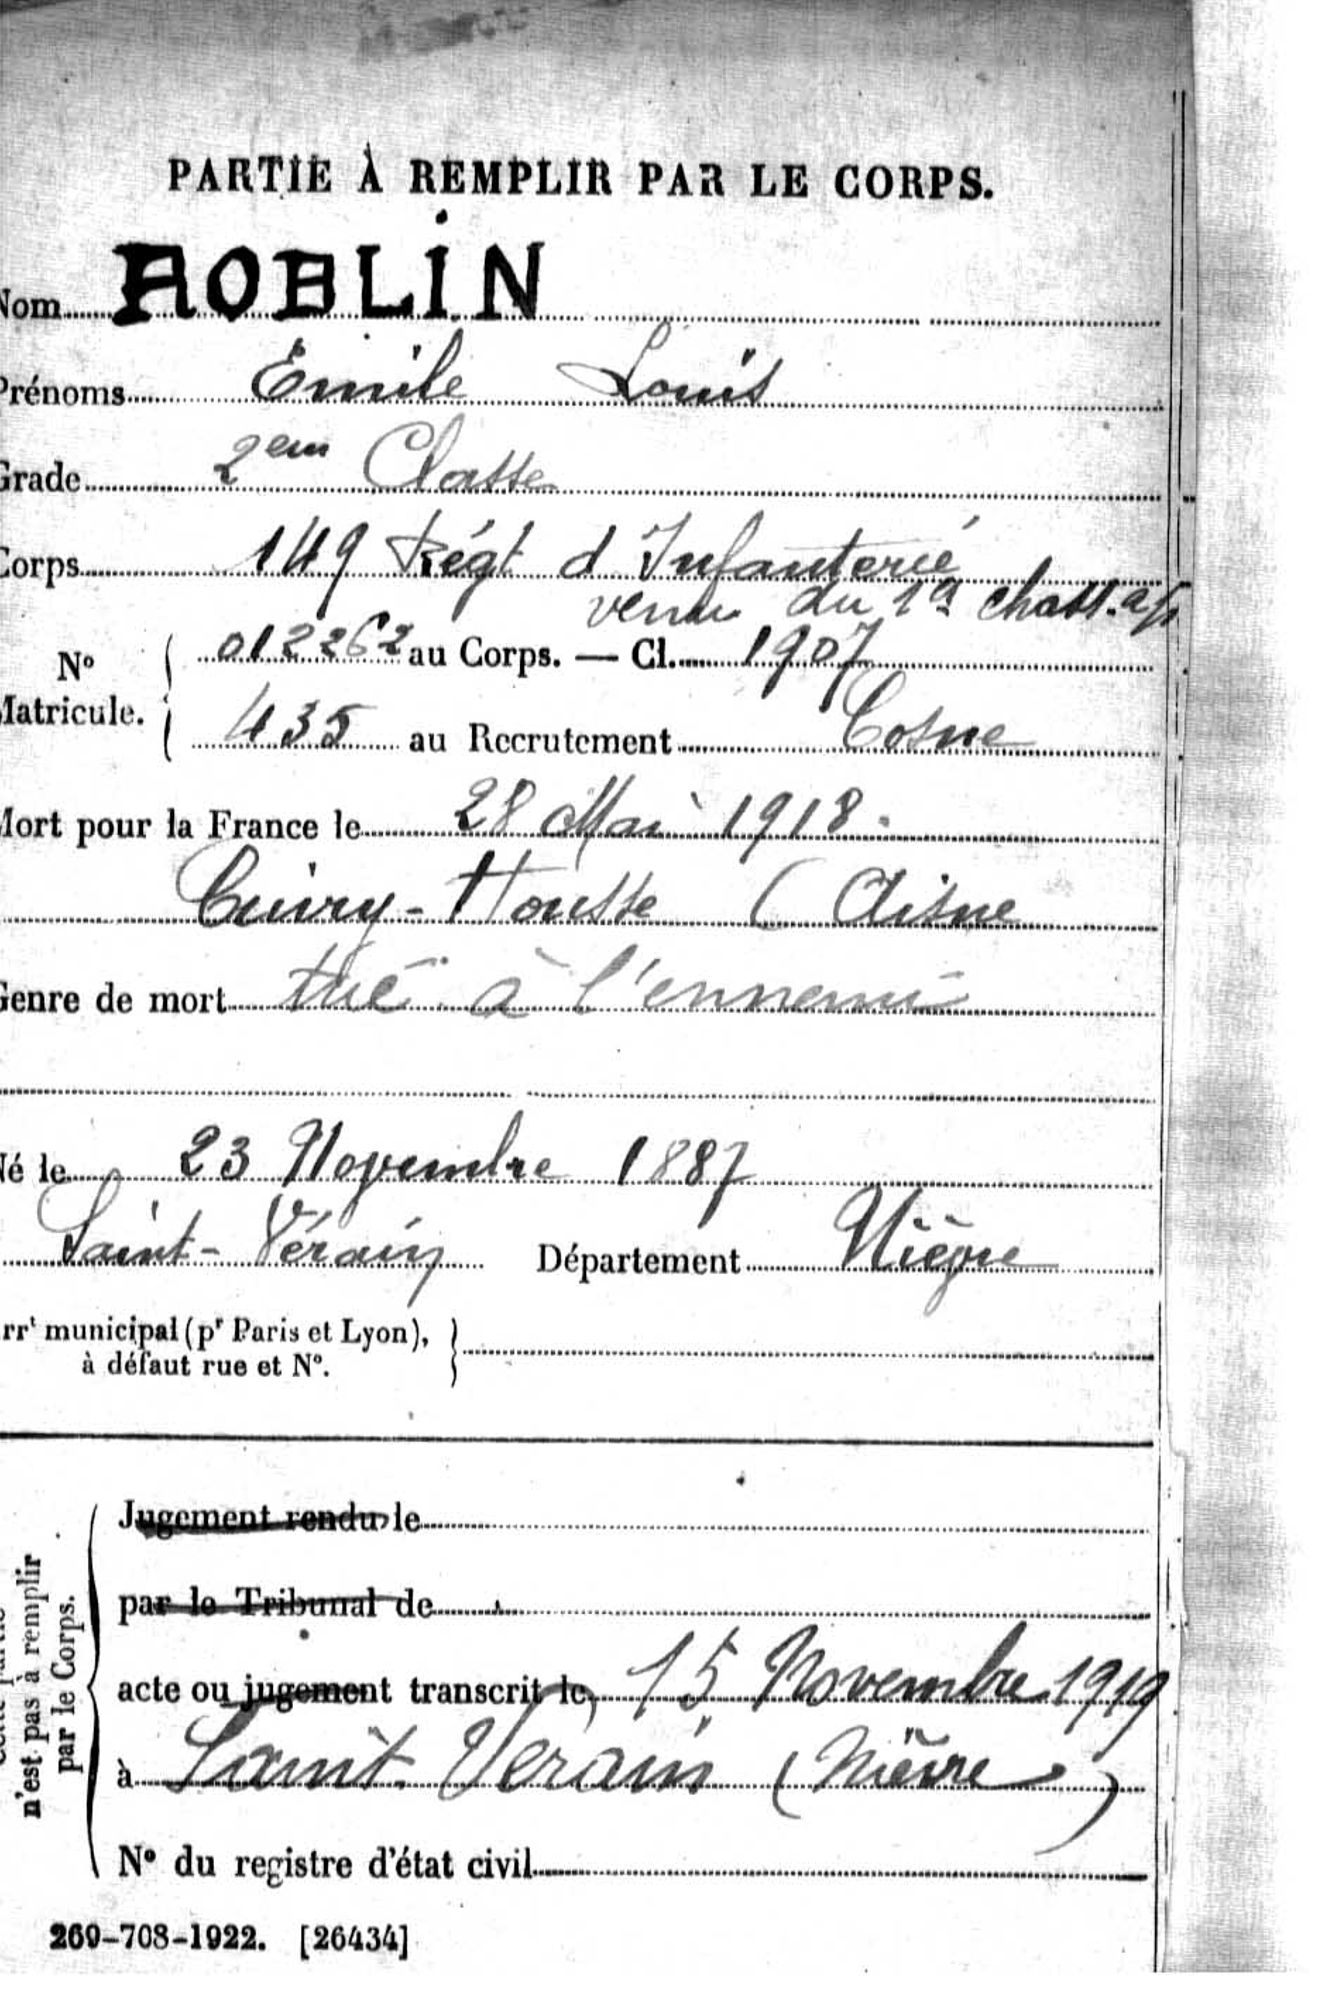 PARTIE À REMPLIR PAR LE CORPS.
Nom ROBLIN
Prénoms Emile Louis
Grade 2em Classe
Corps 149 Régt d'Infanterie
venu du chass. à p
N° Matricule. 012262 au Corps. — Cl. 1907
435 au Recrutement Cosne
Mort pour la France le 28 Mai 1918.
Cuiry-Housse (Aisne
Genre de mort tué à l'ennemi
Né le 23 Novembre 1887
Saint-Vérain Département Nièvre
rrt municipal (pr Paris et Lyon),
à défaut rue et N°.
n'est pas à remplir
par le Corps.
Jugement rendu le
par le Tribunal de
acte ou jugement transcrit le 15 Novembre 1919
à Saint Verain (Nièvre)
N° du registre d'état civil
269-708-1922. [26434]